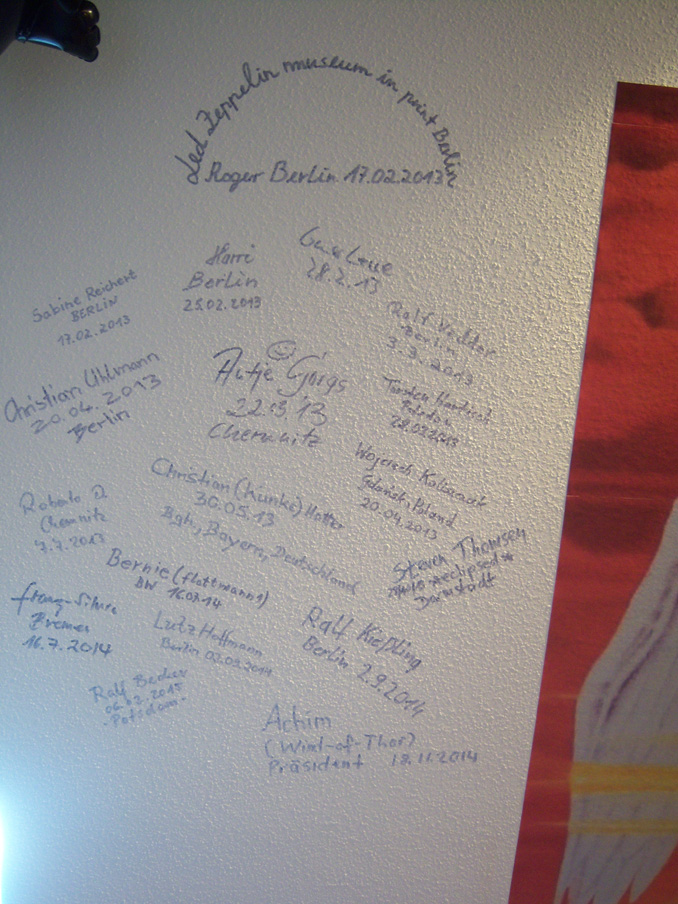 Led Zeppelin museum in print Berlin
Roger Berlin 17.02.2013
Harri
Berlin
25.02.2013
28.2.13
Sabine Reichert
BERLIN
17.02.2013
Ralf
Berlin
3.3.2013
Antje Görgs
22.3.13
Chemnitz
Christian Uhlmann
20.04.2013
Berlin
Torsten
Potsdam
Wojciech
Gdańsk, Poland
20.04.2013
Christian (hünke) Hotter
30.05.13
Bgh., Bayern, Deutschland
Roberto
Chemnitz
7.7.2013
Steven Thomsen
*eclipsed*
Darmstadt
Bernie (flattmanns)
Bremen
16.7.2014
Lutz Hoffmann
Berlin 02.09.2014
Ralf Kießling
Berlin 2.9.2014
Ralf Becker
06.02.2015
-Potsdam-
Achim
(Wint-of-Thor)
Präsident 18.11.2014